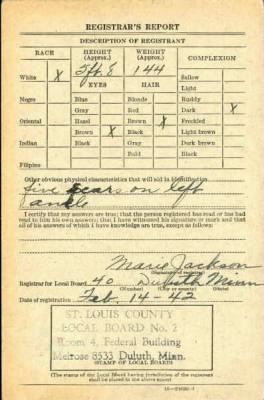 REGISTRAR'S REPORT
DESCRIPTION OF REGISTRANT
RACE HEIGHT (Approx.) WEIGHT (Approx.) COMPLEXION
White X 5ft. 8 144 Sallow
EYES HAIR Light
Negro Blue Blonde Ruddy
Gray Red Dark X
Oriental Hazel Brown X Freckled
Brown X Black Light brown
Indian Black Gray Dark brown
Bald Black
Filipino
Other obvious physical characteristics that will aid in identification
five scars on left
ankle
I certify that my answers are true; that the person registered has read or has had
read to him his own answers; that I have witnessed his signature or mark and that
all of his answers of which I have knowledge are true, except as follows:
Marie Jackson
Registrar for Local Board 40 Duluth Minn
(Number) (City or county) (State)
Date of registration Feb. 14-42
ST. LOUIS COUNTY
LOCAL BOARD No. 2
Room 4, Federal Building
Melrose 8533 Duluth, Minn.
(STAMP OF LOCAL BOARD)
(The stamp of the Local Board having jurisdiction of the registrant
shall be placed in the above space.)